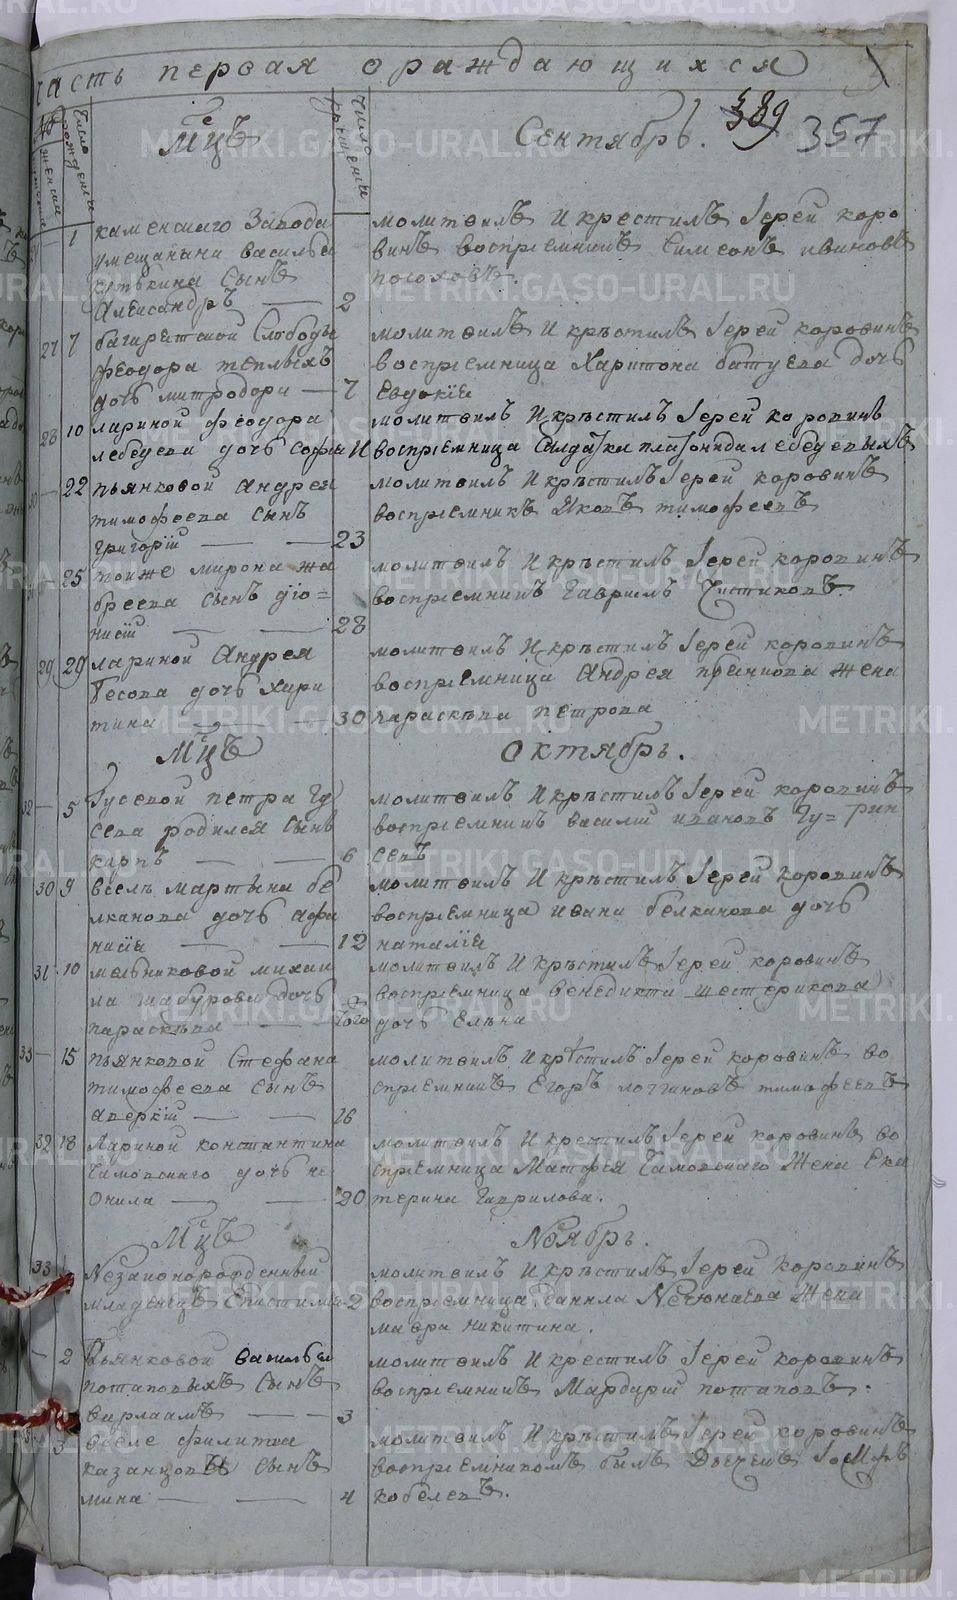 часть первая ораждающихся
число рождения
женска
число крещения
Мцъ
Сентябрь.
389
357
1
каменскаго Завода
умещанина василья
сынъ
Александръ
2
молитвилъ И крестилъ Іерей коро
винъ восприемникъ Симеонъ ивановъ
27 7
багарятской Слободы
феодора теплыхъ
дочь митродора
7
молитвилъ И кръстилъ Іерей коровинъ
восприемница Харитона батуева дочь
Евдокіе
28 10
лариной феодора
лебедева дочь софья
И
молитвилъ И кръстилъ Іерей коровинъ
восприемница Салдатка лебедевыхъ
22
пьянковой Андрея
тимофеева сынъ
григорій
23
молитвилъ И кръстилъ Іерей коровинъ
восприемникъ Яковъ тимофеевъ
25
тойже мирона жа
бреева сынъ діо=
нисій
28
молитвилъ И кръстилъ Іерей коровинъ
восприемникъ Гавріилъ Чистиковъ
29 29
лариной Андрея
бесова дочь хари
тина
30
молитвилъ И кръстилъ Іерей коровинъ
восприемница Андрея пьянкова жена
параскъва петрова
Мцъ
Октябрь.
32 5
Гусевой петра Гу
сева родился сынъ
карпъ
6
молитвилъ И кръстилъ Іерей коровинъ
восприемникъ василій ивановъ Гу=
севъ
30 9
всель мартына бе
лканова дочь афа
насіе
12
молитвилъ И кръстилъ Іерей коровинъ
восприемница ивана белканова дочь
наталіе
31 10
мельниковой михаи
ла шабурова дочь
параскъва
того
молитвилъ И кръстилъ Іерей коровинъ
восприемница венедикта шестерикова
дочь Елъна
33 15
пьянковой Стефана
тимофеева сынъ
аверкій
16
молитвилъ И кръстилъ Іерей коровинъ во
сприемникъ Егоръ логгиновъ тимофеевъ
32 18
Лариной константина
дочь не
онила
20
молитвилъ И крестилъ Іерей коровинъ во
сприемница Матфея Жена Ека
терина Гаврилова.
Мцъ
Ноябрь.
33 1
Незаконорожденный
младенецъ Епистимия
2
молитвилъ И кръстилъ Іерей коровинъ
восприемница данила Нечюнаева Жена
мавра никитина.
2
Пьянковой василья
потаповыхъ сынъ
варлаамъ
3
молитвилъ И крестилъ Іерей коровинъ
восприемникъ Мардарій потаповъ.
3
всель филипа
казанцовы сынъ
мина
4
молитвилъ И кръстилъ Іерей коровинъ
восприемникомъ былъ Іосифъ
кобелевъ.
METRIKI.GASO-URAL.RU